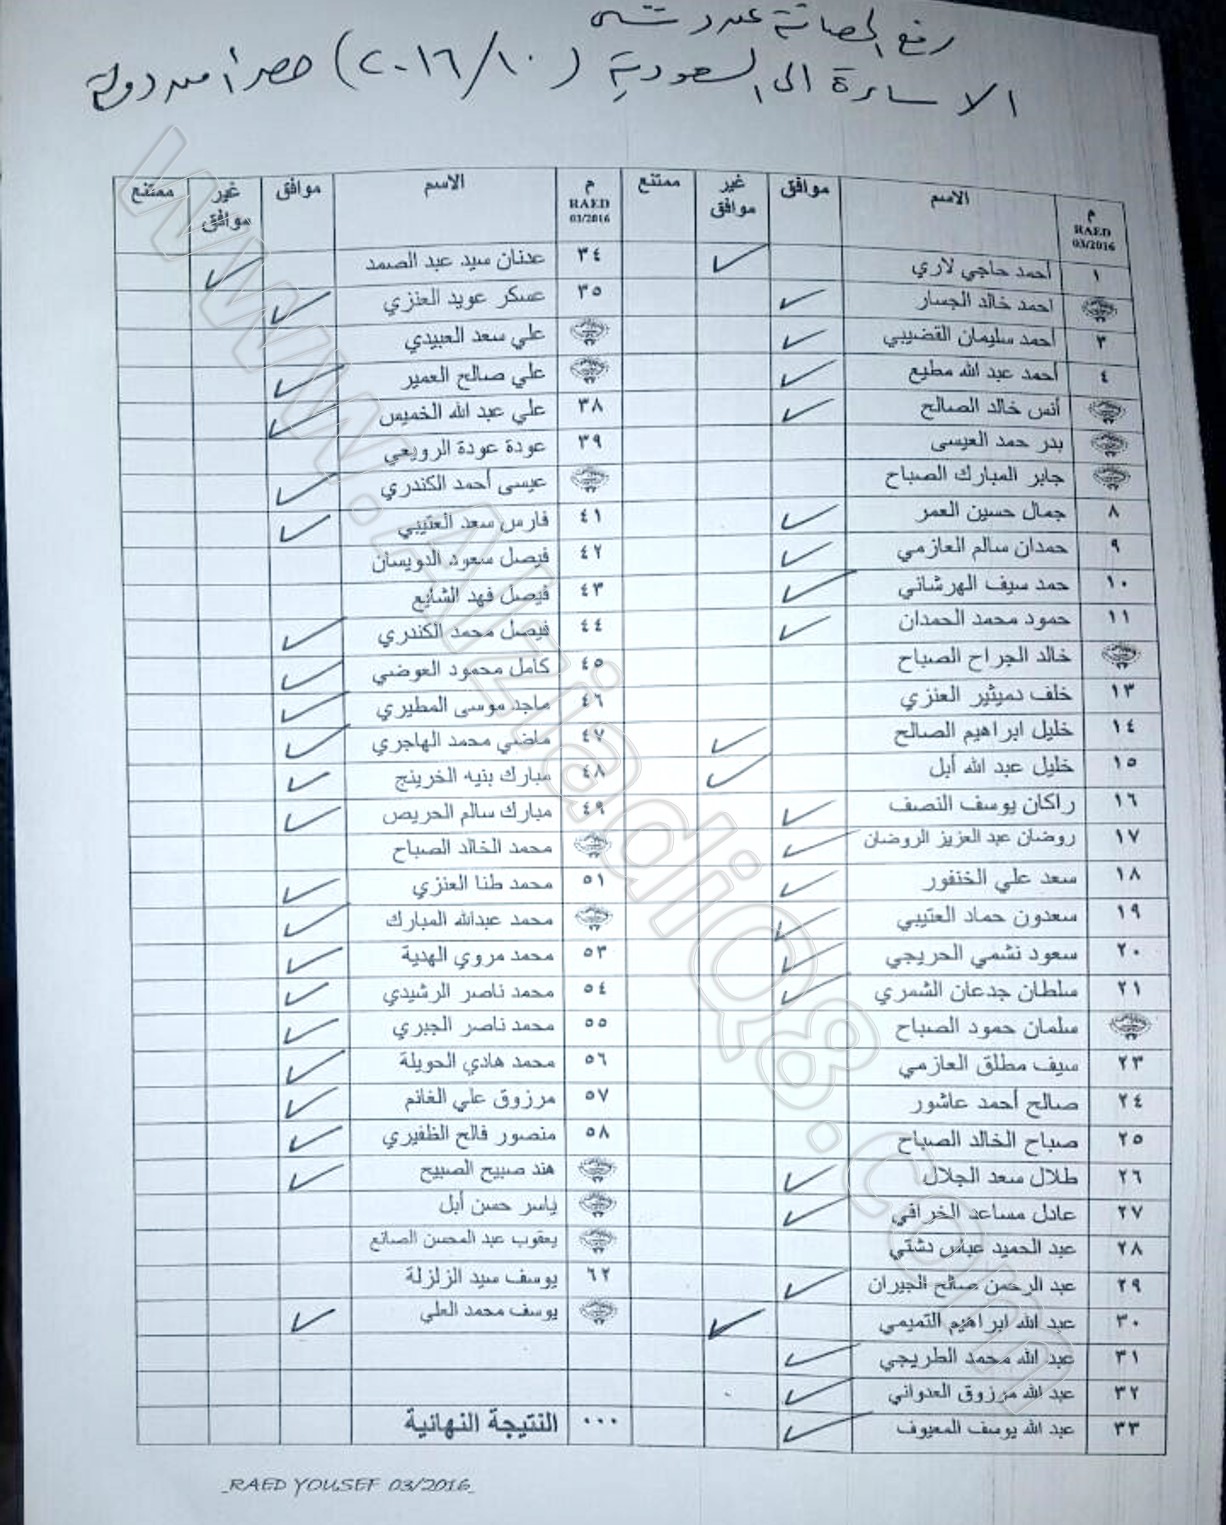 رفع الحصانة عن دشتي
الاساءة الى السعودية (٢٠١٦/١٠) حصر أمن دولة
م RAED 03/2016 الاسم موافق غير موافق ممتنع م RAED 03/2016 الاسم موافق غير موافق ممتنع
١ أحمد حاجي لاري ✓ ٣٤ عدنان سيد عبد الصمد ✓
احمد خالد الجسار ✓ ٣٥ عسكر عويد العنزي ✓
٣ أحمد سليمان القضيبي ✓ علي سعد العبيدي
٤ أحمد عبد الله مطيع ✓ علي صالح العمير ✓
أنس خالد الصالح ✓ ٣٨ علي عبد الله الخميس ✓
بدر حمد العيسى ٣٩ عودة عودة الرويعي
جابر المبارك الصباح عيسى أحمد الكندري ✓
٨ جمال حسين العمر ✓ ٤١ فارس سعد العتيبي ✓
٩ حمدان سالم العازمي ✓ ٤٢ فيصل سعود الدويسان
١٠ حمد سيف الهرشاني ✓ ٤٣ فيصل فهد الشايع
١١ حمود محمد الحمدان ✓ ٤٤ فيصل محمد الكندري ✓
خالد الجراح الصباح ٤٥ كامل محمود العوضي ✓
١٣ خلف دميثير العنزي ٤٦ ماجد موسى المطيري ✓
١٤ خليل ابراهيم الصالح ✓ ٤٧ ماضي محمد الهاجري ✓
١٥ خليل عبد الله أبل ✓ ٤٨ مبارك بنيه الخرينج ✓
١٦ راكان يوسف النصف ✓ ٤٩ مبارك سالم الحريص ✓
١٧ روضان عبد العزيز الروضان ✓ محمد الخالد الصباح
١٨ سعد علي الخنفور ✓ ٥١ محمد طنا العنزي ✓
١٩ سعدون حماد العتيبي ✓ محمد عبدالله المبارك ✓
٢٠ سعود نشمي الحريجي ✓ ٥٣ محمد مروي الهدية ✓
٢١ سلطان جدعان الشمري ✓ ٥٤ محمد ناصر الرشيدي ✓
سلمان حمود الصباح ٥٥ محمد ناصر الجبري ✓
٢٣ سيف مطلق العازمي ٥٦ محمد هادي الحويلة ✓
٢٤ صالح أحمد عاشور ٥٧ مرزوق علي الغانم ✓
٢٥ صباح الخالد الصباح ٥٨ منصور فالح الظفيري ✓
٢٦ طلال سعد الجلال ✓ هند صبيح الصبيح ✓
٢٧ عادل مساعد الخرافي ✓ ياسر حسن أبل
٢٨ عبد الحميد عباس دشتي يعقوب عبد المحسن الصانع
٢٩ عبد الرحمن صالح الجيران ✓ ٦٢ يوسف سيد الزلزلة
٣٠ عبد الله ابراهيم التميمي ✓ يوسف محمد العلي ✓
٣١ عبد الله محمد الطريجي ✓
٣٢ عبد الله مرزوق العدواني ✓
٣٣ عبد الله يوسف المعيوف ✓ ٠٠٠ النتيجة النهائية
_RAED YOUSEF 03/2016_